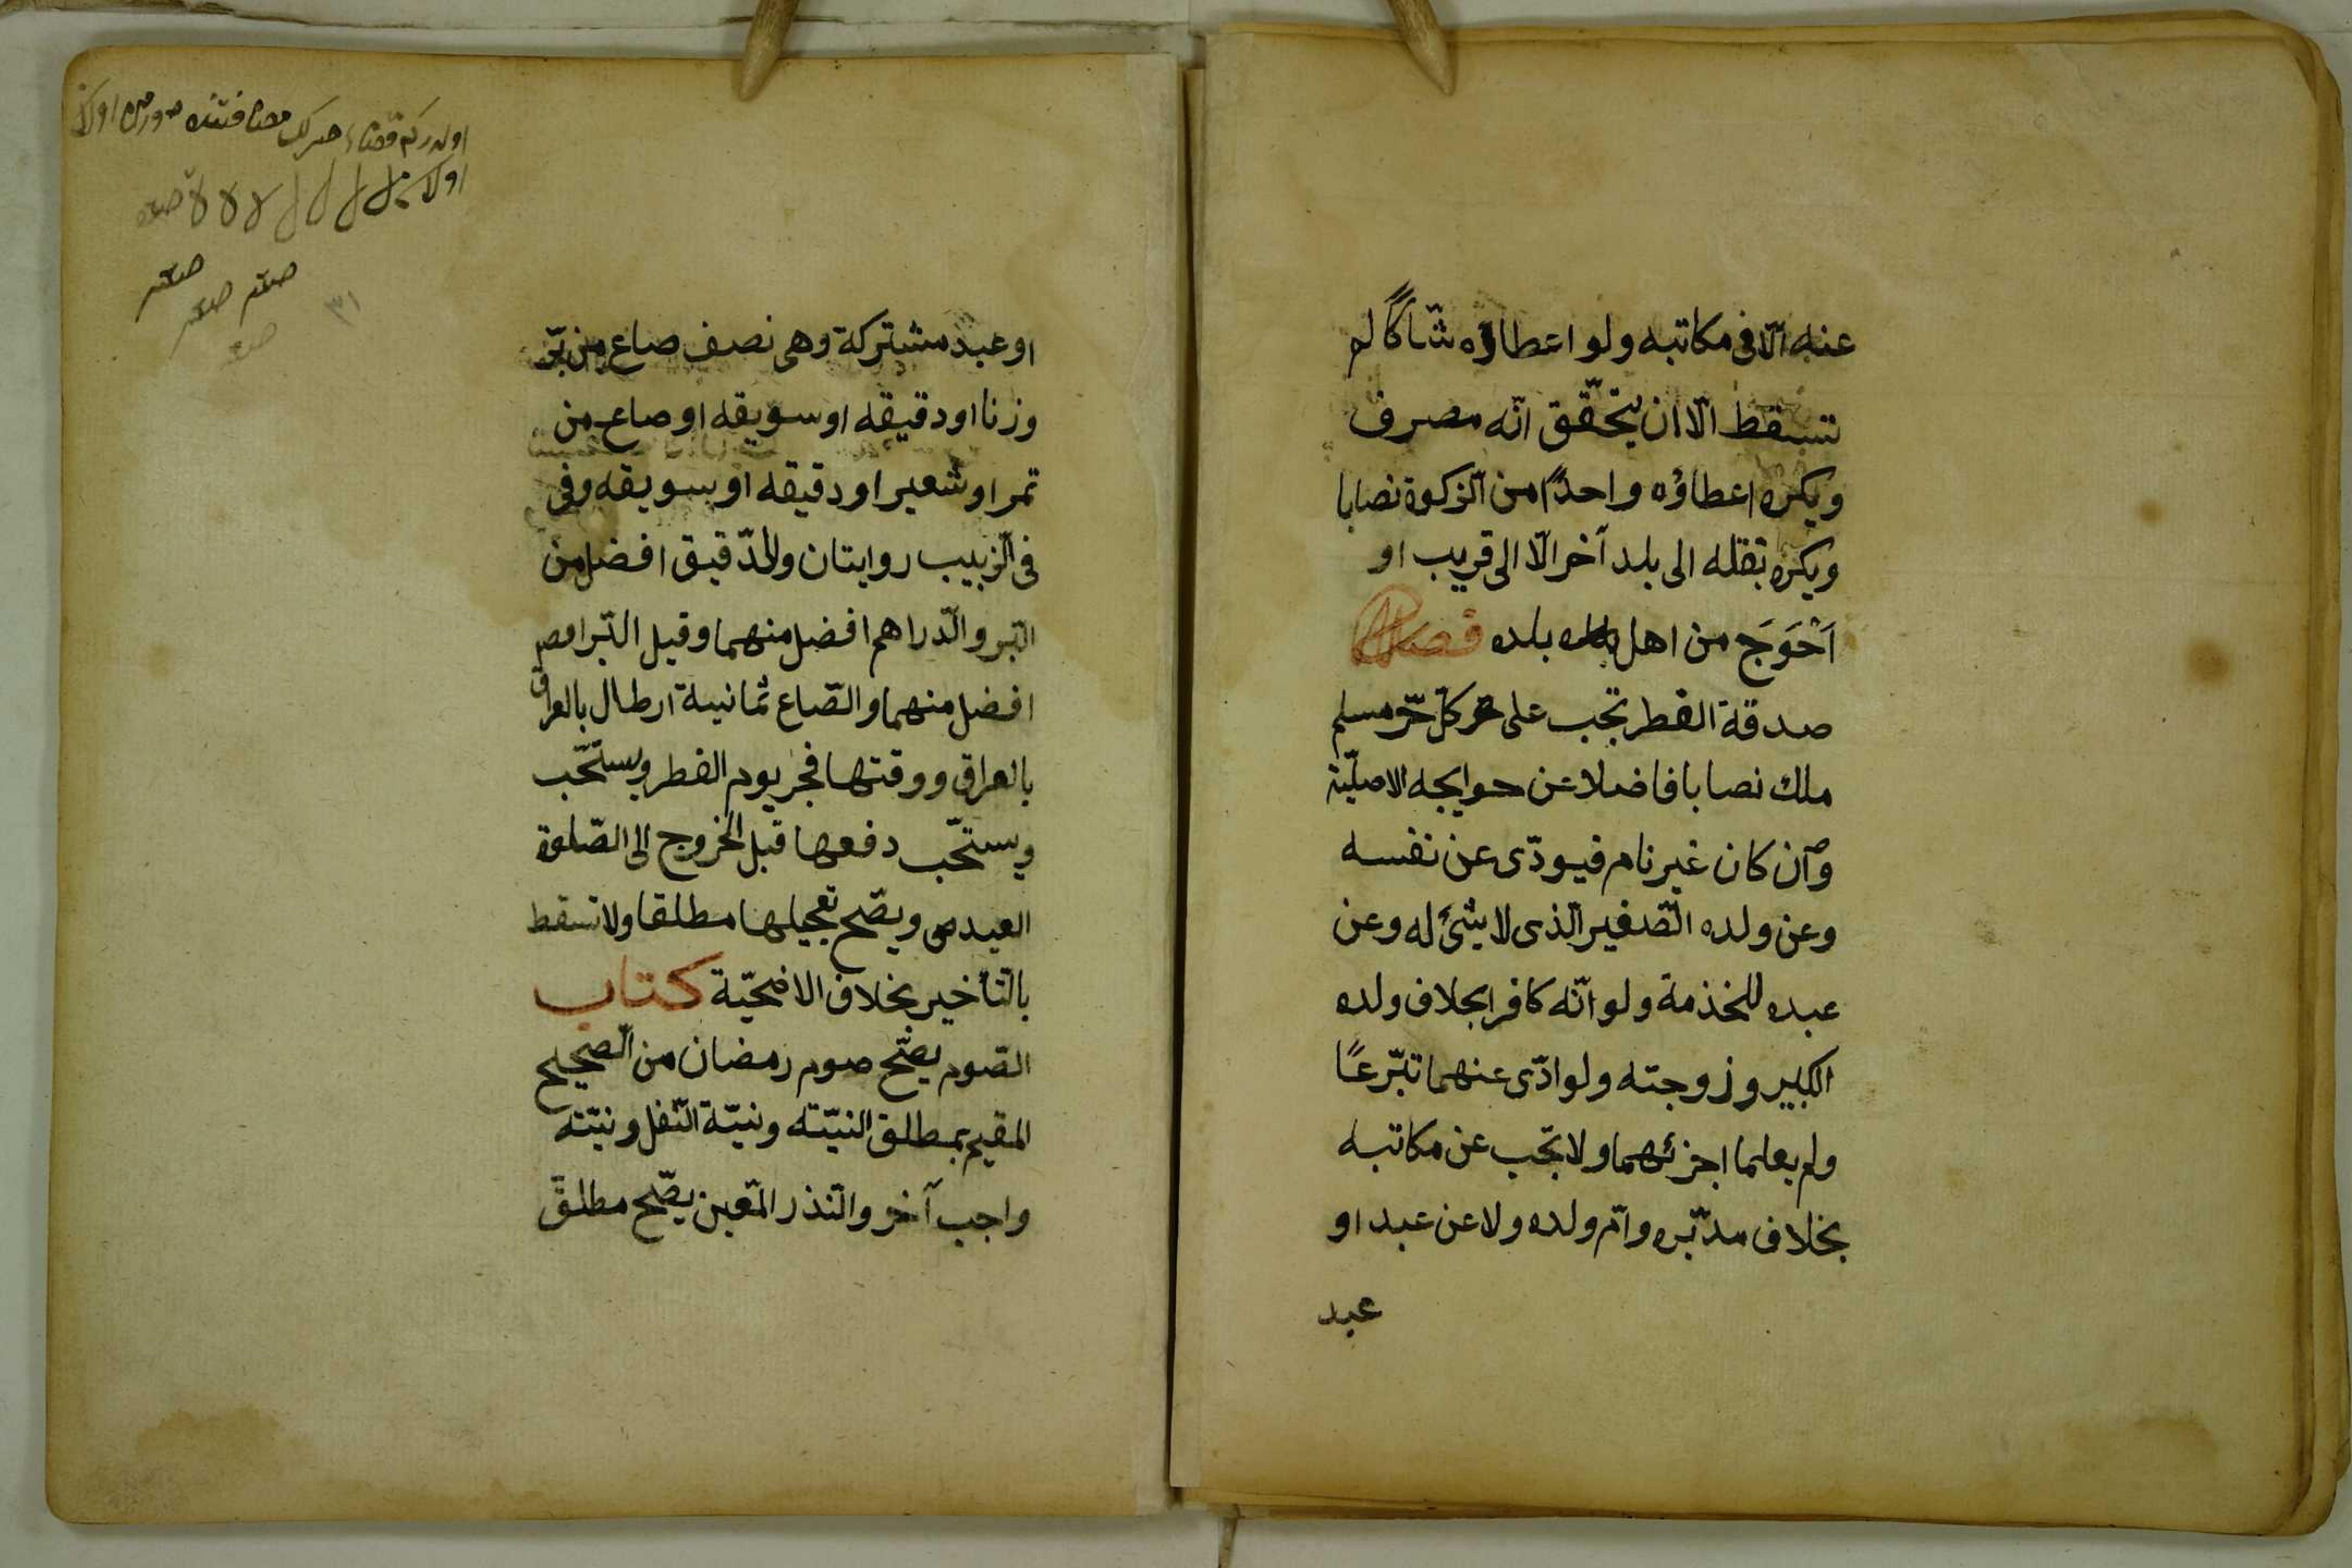 عنه الّا فى مكاتبه ولو اعطاؤه شاكًّا لم
تسقط الّا ان يتحقّق انّه مصرف
ويكره اعطاؤه واحدًا من الزكوة نصابا
ويكره نقله الى بلد آخر الّا الى قريب او
اَحْوَج من اهل بلده فصل
صدقة الفطر تجب على كلّ حرّ مسلم
ملك نصابا فاضلا عن حوايجه الاصليّة
وان كان غير نام فيودّى عن نفسه
وعن ولده الصّغير الّذى لا شئ له وعن
عبده للخذمة ولو انّه كافر بخلاف ولده
الكبير وزوجته ولو ادّى عنهما تبّرعًا
ولم يعلما اجزئهما ولا تجب عن مكاتبه
بخلاف مدبّره وامّ ولده ولا عن عبد او
عبد
او عبد مشتركة وهى نصف صاع من برّ
وزنا او دقيقه او سويقه او صاع من
تمر او شعير او دقيقه او سويقه وفى
فى الزبيب روايتان والدّقيق افضل من
البر والدّراهم افضل منهما وقيل البّر
افضل منهما والصّاع ثمانية ارطال بالعراق
بالعراق ووقتها فجر يوم الفطر ويستحّب
ويستحّب دفعها قبل الخروج الى الصّلوة
العيد ويصّح تعجيلها مطلقا ولا تسقط
بالتأخير بخلاف الاضحيّة كتاب
الصّوم يصّح صوم رمضان من الصّحيح
المقيم بمطلق النيّته ونيّة النّفل ونيّته
واجب آخر والنّذر المّعين يصّح مطلق
٣١